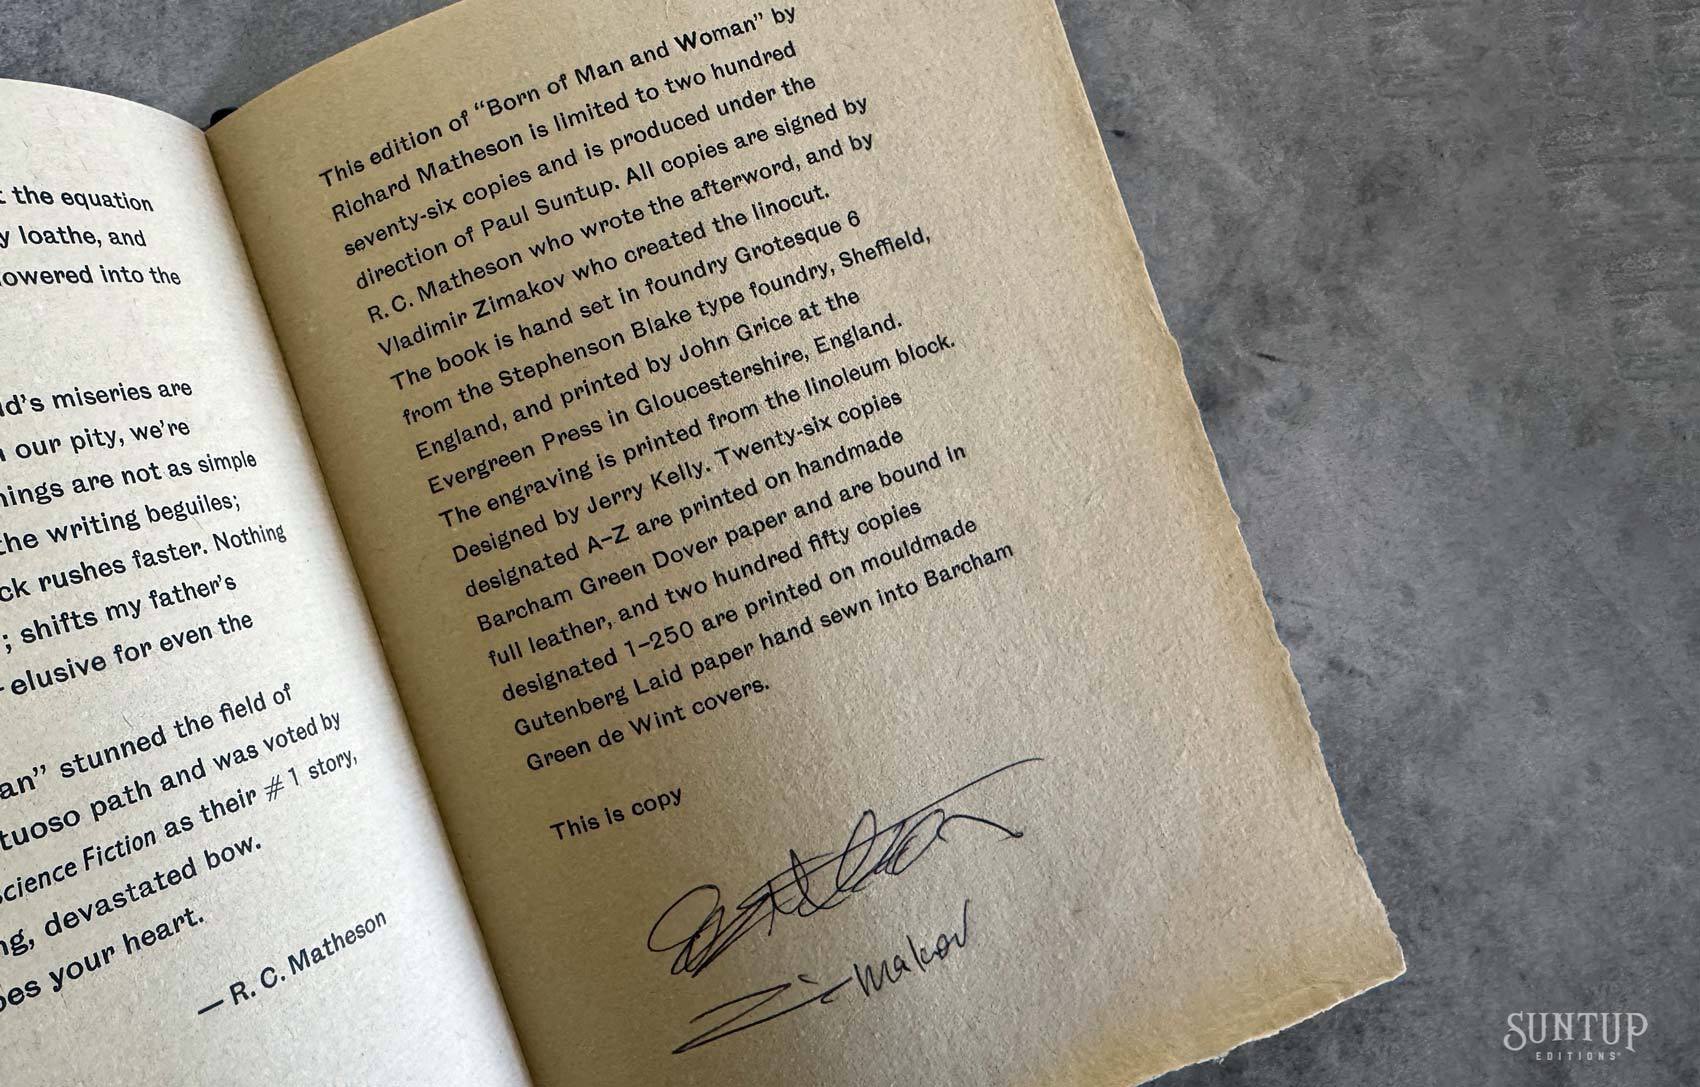 t the equation
y loathe, and
owered into the
ld’s miseries are
our pity, we’re
hings are not as simple
the writing beguiles;
ck rushes faster. Nothing
; shifts my father’s
- elusive for even the
an” stunned the field of
tuoso path and was voted by
Science Fiction as their #1 story,
ng, devastated bow.
pes your heart.
— R. C. Matheson
This edition of “Born of Man and Woman” by
Richard Matheson is limited to two hundred
seventy-six copies and is produced under the
direction of Paul Suntup. All copies are signed by
R. C. Matheson who wrote the afterword, and by
Vladimir Zimakov who created the linocut.
The book is hand set in foundry Grotesque 6
from the Stephenson Blake type foundry, Sheffield,
England, and printed by John Grice at the
Evergreen Press in Gloucestershire, England.
The engraving is printed from the linoleum block.
Designed by Jerry Kelly. Twenty-six copies
designated A–Z are printed on handmade
Barcham Green Dover paper and are bound in
full leather, and two hundred fifty copies
designated 1–250 are printed on mouldmade
Gutenberg Laid paper hand sewn into Barcham
Green de Wint covers.
This is copy
Zimakov
SUNTUP
EDITIONS